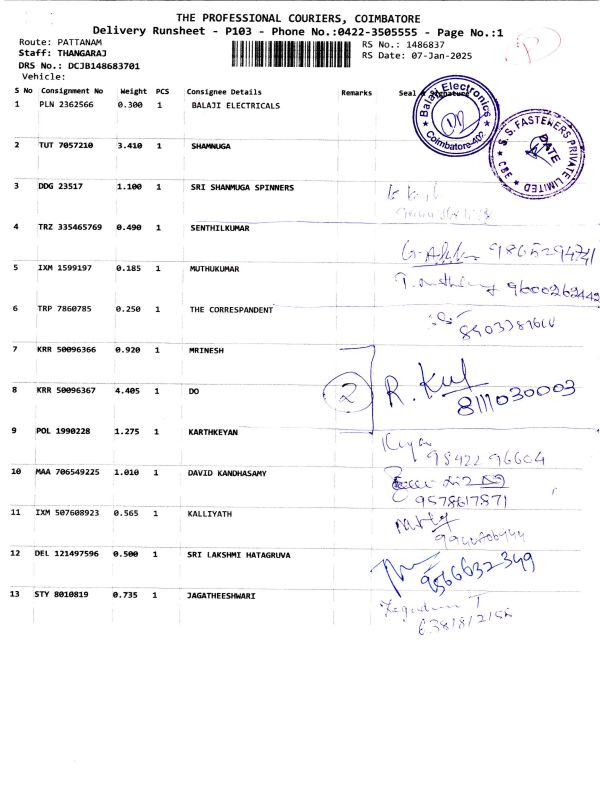 THE PROFESSIONAL COURIERS, COIMBATORE
Delivery Runsheet - P103 - Phone No.:0422-3505555 - Page No.:1
Route: PATTANAM
Staff: THANGARAJ
DRS No.: DCJB148683701
Vehicle:
RS No.: 1486837
RS Date: 07-Jan-2025
P
S No Consignment No Weight PCS Consignee Details Remarks Seal & Signature
1 PLN 2362566 0.300 1 BALAJI ELECTRICALS
Balaji Electronics
Coimbatore-402
S.S. FASTENERS PRIVATE LIMITED
CBE
DATE
2 TUT 7057210 3.410 1 SHAMNUGA
3 DDG 23517 1.100 1 SRI SHANMUGA SPINNERS
4 TRZ 335465769 0.490 1 SENTHILKUMAR
9865294741
5 IXM 1599197 0.185 1 MUTHUKUMAR
9600262442
6 TRP 7860785 0.250 1 THE CORRESPANDENT
7 KRR 50096366 0.920 1 MRINESH
8 KRR 50096367 4.405 1 DO
2
R. Kul
8111030003
9 POL 1990228 1.275 1 KARTHKEYAN
98422 96604
10 MAA 706549225 1.010 1 DAVID KANDHASAMY
9578617871
11 IXM 507608923 0.565 1 KALLIYATH
12 DEL 121497596 0.500 1 SRI LAKSHMI HATAGRUVA
9566632349
13 STY 8010819 0.735 1 JAGATHEESHWARI